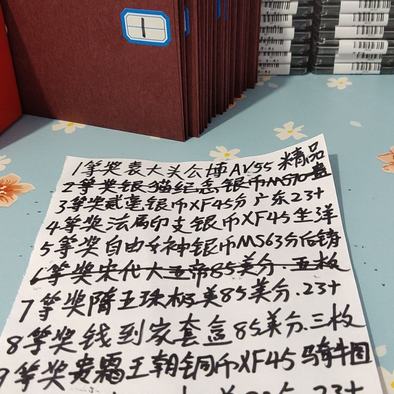 1
1等奖袁大头公博AV55 精品
2等奖银猫纪念银币MS70
3等奖贰毫银币XF45分广东23+
4等奖法属印支银币XF45坐洋
5等奖自由女神银币MS63分后铸
6等奖宋代大五帝85美分.五枚
7等奖隋五珠极美85美分.23+
8等奖钱到家套盒85美分.三枚
9等奖贵霜王朝铜币XF45骑牛图
23+